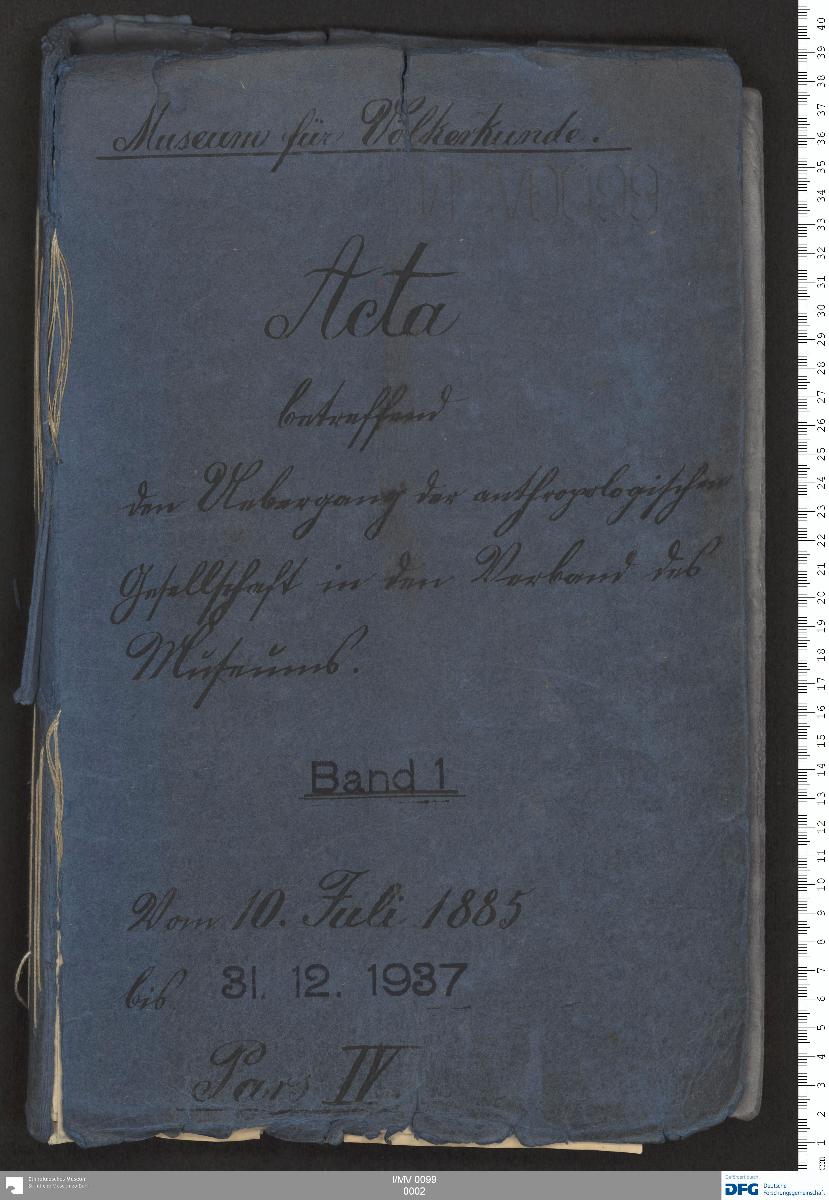 Museum für Völkerkunde.
I/MV0099
Acta
betreffend
den Uebergang der anthropologischen
Gesellschaft in den Verband des
Museums.
Band 1
Vom 10. Juli 1885
bis 31. 12. 1937
Pars IV.
40
39
38
37
36
35
34
33
32
31
30
29
28
27
26
25
24
23
22
21
20
19
18
17
16
15
14
13
12
11
10
9
8
7
6
5
4
3
2
1
cm
Ethnologisches Museum
Staatliche Museen zu Berlin
I/MV 0099
0002
Gefördert durch
DFG Deutsche
Forschungsgemeinschaft